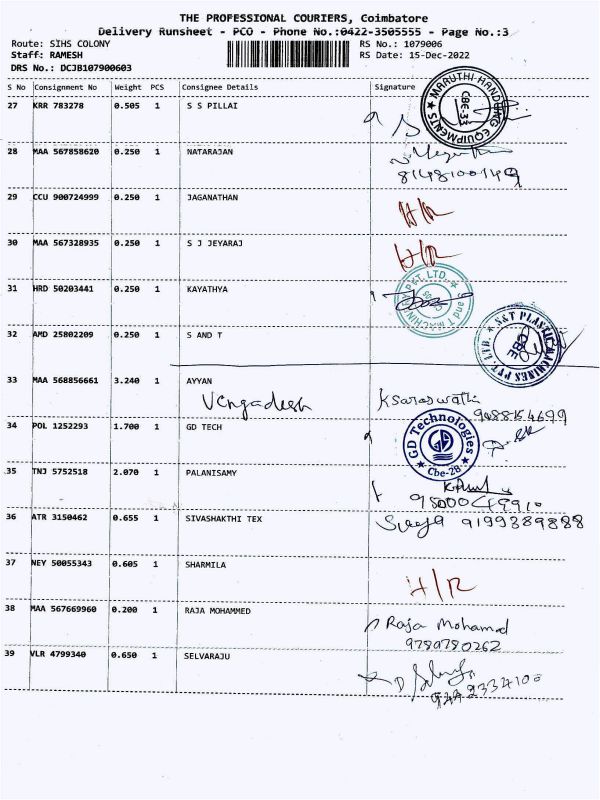 THE PROFESSIONAL COURIERS, Coimbatore
Delivery Runsheet - PCO - Phone No.:0422-3505555 - Page No.:3
Route: SIHS COLONY RS No.: 1079006
Staff: RAMESH RS Date: 15-Dec-2022
DRS No.: DCJB107900603
S No Consignment No Weight PCS Consignee Details Signature
27 KRR 783278 0.505 1 S S PILLAI
MARUTHI HANDLING EQUIPMENTS CBE-33
28 MAA 567858620 0.250 1 NATARAJAN
8148100149
29 CCU 900724999 0.250 1 JAGANATHAN H/R
30 MAA 567328935 0.250 1 S J JEYARAJ H/R
31 HRD 50203441 0.250 1 KAYATHYA
PVT. LTD.
32 AMD 25802209 0.250 1 S AND T
S&T PLASTIC MACHINES PVT. LTD. CBE
33 MAA 568856661 3.240 1 AYYAN K Saraswathi
Vengadesh 9088154699
34 POL 1252293 1.700 1 GD TECH
GD Technologies Cbe-28
35 TNJ 5752518 2.070 1 PALANISAMY
36 ATR 3150462 0.655 1 SIVASHAKTHI TEX Surya 9199389888
37 NEY 50055343 0.605 1 SHARMILA H/R
38 MAA 567669960 0.200 1 RAJA MOHAMMED Raja Mohamed
9789780262
39 VLR 4799340 0.650 1 SELVARAJU